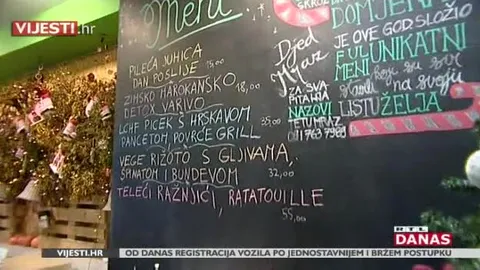 VIJESTI.hr
Meni
PILEĆA JUHICA
DAN POSLIJE 15,00
ZIMSKO MAROKANSKO 18,00
DETOX VARIVO
LCHF PICEK S HRSKAVOM 35,00
PANCETOM, POVRĆE GRILL
VEGE RIŽOTO S GLJIVAMA,
ŠPINATOM I BUNDEVOM 32,00
TELEĆI RAŽNJIĆI, RATATOUILLE
55,00
Djed
Mraz
ZA SVA
PITANJA
NAZOVI
TETU MRAZ
DOMJEN
JE OVE GOD. SLOŽIO
FULUNIKATNI
MENI koji su svi
na svoju
LISTU ŽELJA
RTL
DANAS
VIJESTI.hr
OD DANAS REGISTRACIJA VOZILA PO JEDNOSTAVNIJEM I BRŽEM POSTUPKU